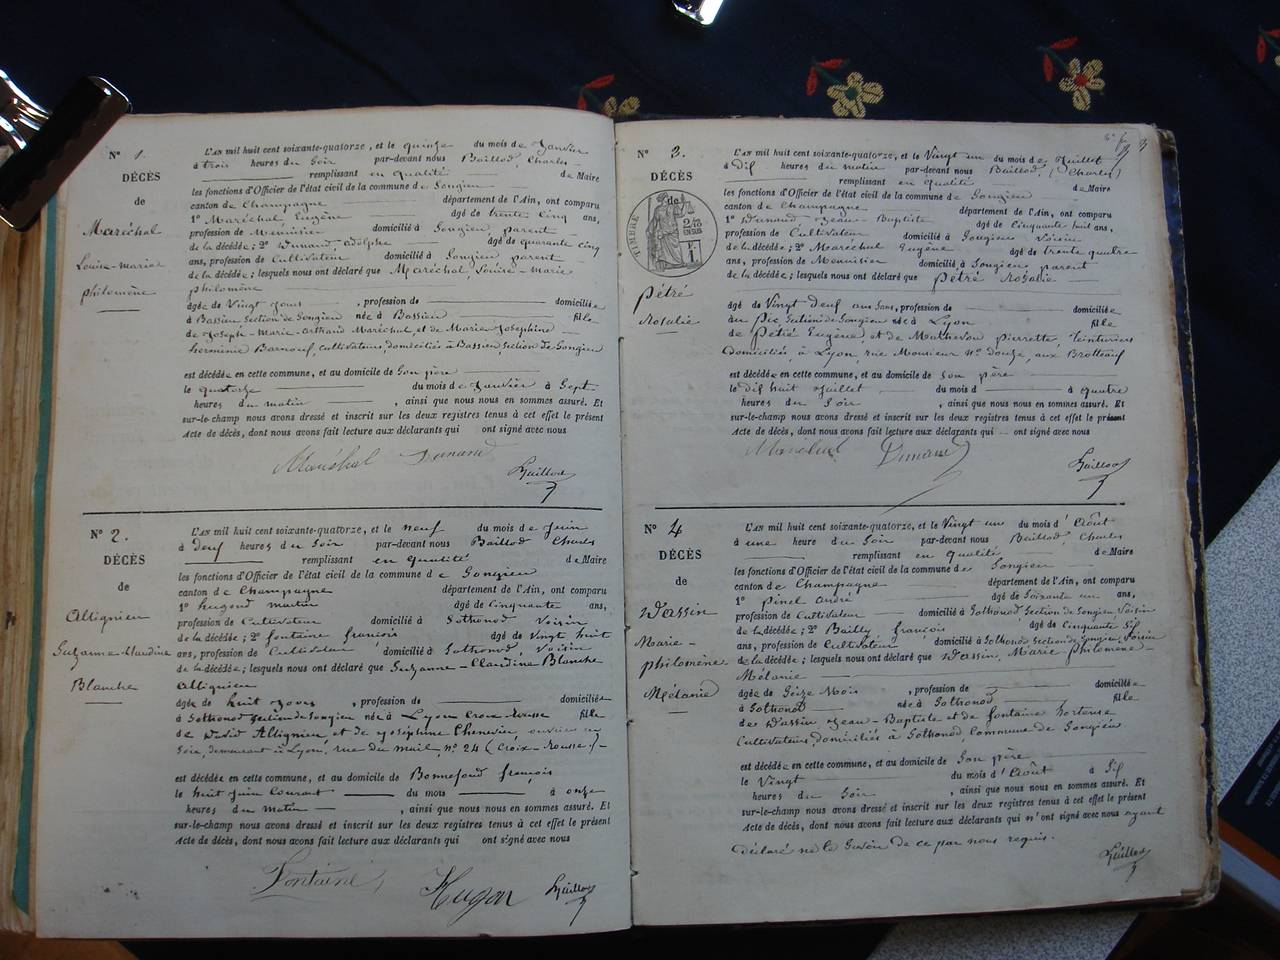 N° 1.
DÉCÈS
de
Maréchal
Louise-marie
philomène
L'AN mil huit cent soixante-quatorze, et le quinze du mois de Janvier
à trois heures du Soir par-devant nous Baillod Charles
remplissant en qualité de Maire
les fonctions d'Officier de l'état civil de la commune de Songieu
canton de Champagne département de l'Ain, ont comparu
1° Maréchal Eugène âgé de trente cinq ans,
profession de Menuisier domicilié à Songieu parent
de la décédée; 2° Dunand, adolphe âgé de quarante cinq
ans, profession de Cultivateur domicilié à Songieu parent
de la décédée; lesquels nous ont déclaré que Maréchal, Louise-marie
philomène
âgée de Vingt jours, profession de domiciliée
à Bassieu Section de Songieu née à Bassieu fille
de Joseph-Marie-arthaud Maréchal et de Marie Josephine
herminie Barnouf, cultivateurs, domiciliés à Bassieu, section de Songieu
est décédée en cette commune, et au domicile de Son père
le quatorze du mois de Janvier à Sept
heures du matin, ainsi que nous nous en sommes assuré. Et
sur-le-champ nous avons dressé et inscrit sur les deux registres tenus à cet effet le présent
Acte de décès, dont nous avons fait lecture aux déclarants qui ont signé avec nous
Maréchal Dunand
Baillod
N° 2.
DÉCÈS
de
Allignieu
Suzanne-Claudine
Blanche
L'AN mil huit cent soixante-quatorze, et le neuf du mois de Juin
à deux heures du Soir par-devant nous Baillod Charles
remplissant en qualité de Maire
les fonctions d'Officier de l'état civil de la commune de Songieu
canton de Champagne département de l'Ain, ont comparu
1° hugond martin âgé de Cinquante ans,
profession de Cultivateur domicilié à Sothonod Voisin
de la décédée; 2° fontaine françois âgé de Vingt huit
ans, profession de Cultivateur domicilié à Sothonod, Voisin
de la décédée; lesquels nous ont déclaré que Suzanne-Claudine Blanche
Allignieu
âgée de huit jours, profession de domiciliée
à Sothonod Section de Songieu née à Lyon Croix-Rousse fille
de David Allignieu et de Joséphine Chenevier, ouvriers en
Soie, demeurant à Lyon, rue du mail, n° 24 (Croix-Rousse)
est décédée en cette commune, et au domicile de Bonnefond françois
le huit Juin Courant du mois à onze
heures du matin, ainsi que nous nous en sommes assuré. Et
sur-le-champ nous avons dressé et inscrit sur les deux registres tenus à cet effet le présent
Acte de décès, dont nous avons fait lecture aux déclarants qui ont signé avec nous
Fontaine Hugon Baillod
N° 3.
DÉCÈS
de
TIMBRE
Pétré
Rosalie
L'AN mil huit cent soixante-quatorze, et le Vingt un du mois de Juillet
à dix heures du matin par-devant nous Baillod, (Charles)
remplissant en qualité de Maire
les fonctions d'Officier de l'état civil de la commune de Songieu
canton de Champagne département de l'Ain, ont comparu
1° Dunand Jean-Baptiste âgé de Cinquante huit ans,
profession de Cultivateur domicilié à Songieu Voisin
de la décédée; 2° Maréchal Eugène âgé de trente quatre
ans, profession de Menuisier domicilié à Songieu parent
de la décédée; lesquels nous ont déclaré que Pétré Rosalie
âgé de Vingt Deux ans Sans, profession de domiciliée
au Pic, Section de Songieu née à Lyon fille
de Pétré Eugène, et de Mathevon Pierrette, Teinturiers
Domiciliés, à Lyon, rue Monsieur n° douze, aux Brotteaux
est décédée en cette commune, et au domicile de Son père
le dix huit Juillet du mois d à quatre
heures du Soir, ainsi que nous nous en sommes assuré. Et
sur-le-champ nous avons dressé et inscrit sur les deux registres tenus à cet effet le présent
Acte de décès, dont nous avons fait lecture aux déclarants qui ont signé avec nous
Maréchal Dunand
Baillod
N° 4
DÉCÈS
de
Dassin
Marie-
philomène
Mélanie
L'AN mil huit cent soixante-quatorze, et le Vingt un du mois d'Août
à une heure du Soir par-devant nous Baillod, Charles
remplissant en qualité de Maire
les fonctions d'Officier de l'état civil de la commune de Songieu
canton de Champagne département de l'Ain, ont comparu
1° Pinel André âgé de Soixante un ans,
profession de Cultivateur domicilié à Sothonod Section de Songieu, Voisin
de la décédée; 2° Bailly françois âgé de Cinquante Six
ans, profession de Cultivateur domicilié à Sothonod Section de Songieu, Voisin
de la décédée; lesquels nous ont déclaré que Dassin, Marie Philomène-
Mélanie
âgée de Seize Mois, profession de domiciliée
à Sothonod née à Sothonod fille
de Dassin Jean-Baptiste et de fontaine hortense
Cultivateurs, domiciliés à Sothonod, Commune de Songieu
est décédée en cette commune, et au domicile de Son père
le Vingt du mois d'Août à Six
heures du Soir, ainsi que nous nous en sommes assuré. Et
sur-le-champ nous avons dressé et inscrit sur les deux registres tenus à cet effet le présent
Acte de décès, dont nous avons fait lecture aux déclarants qui n'ont signé avec nous ayant
déclaré ne le Savoir de ce par nous requis.
Baillod